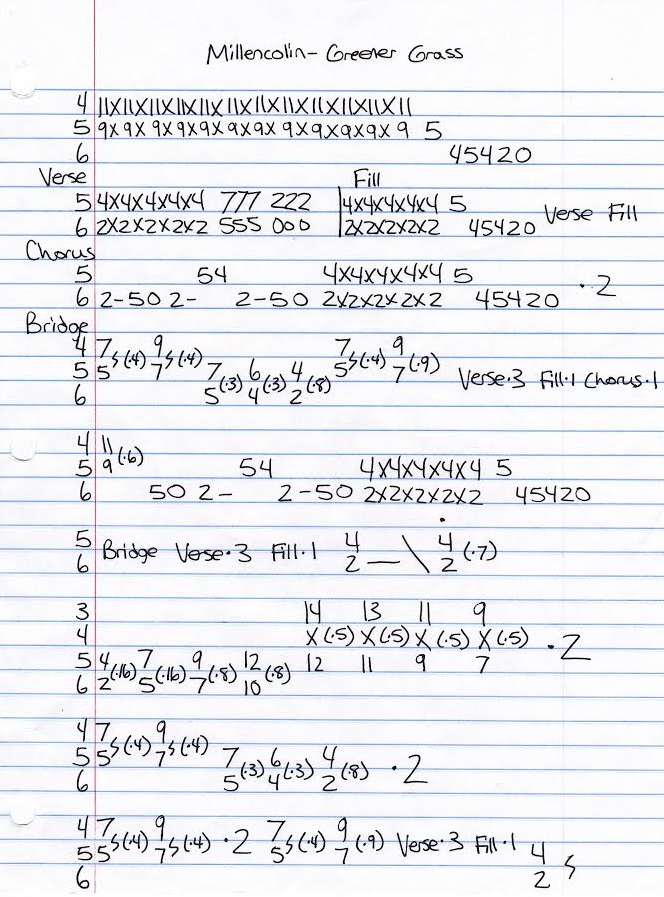 Millencolin - Greener Grass
4 11X11X11X11X11X11X11X11X11X11X11
5 9X9X9X9X9X9X9X9X9X9X9 5
6 45420
Verse Fill
5 4X4X4X4X4 777 222 4X4X4X4X4 5 Verse Fill
6 2X2X2X2X2 555 000 2X2X2X2X2 45420
Chorus
5 54 4X4X4X4X4 5 ·2
6 2-50 2- 2-50 2X2X2X2X2 45420
Bridge
4 7 9 7 9
5 5 s(·4) 7 s(·4) 7 (·3) 6 (·3) 4 (·8) 5 s(·4) 7 (·9) Verse·3 Fill·1 Chorus·1
6 5 4 2
4 11
5 9 (·6) 54 4X4X4X4X4 5
6 50 2- 2-50 2X2X2X2X2 45420
5 Bridge Verse·3 Fill·1 4 — \ 4 (·7)
6 2 2
3 14 13 11 9
4 X (·5) X (·5) X (·5) X (·5) ·2
5 4 (·16) 7 (·16) 9 (·8) 12 (·8) 12 11 9 7
6 2 5 7 10
4 7 9
5 5 s(·4) 7 s(·4) 7 (·3) 6 (·3) 4 (·8) ·2
6 5 4 2
4 7 9 7 9
5 5 s(·4) 7 s(·4) ·2 5 s(·4) 7 (·9) Verse·3 Fill·1 4 s
6 2